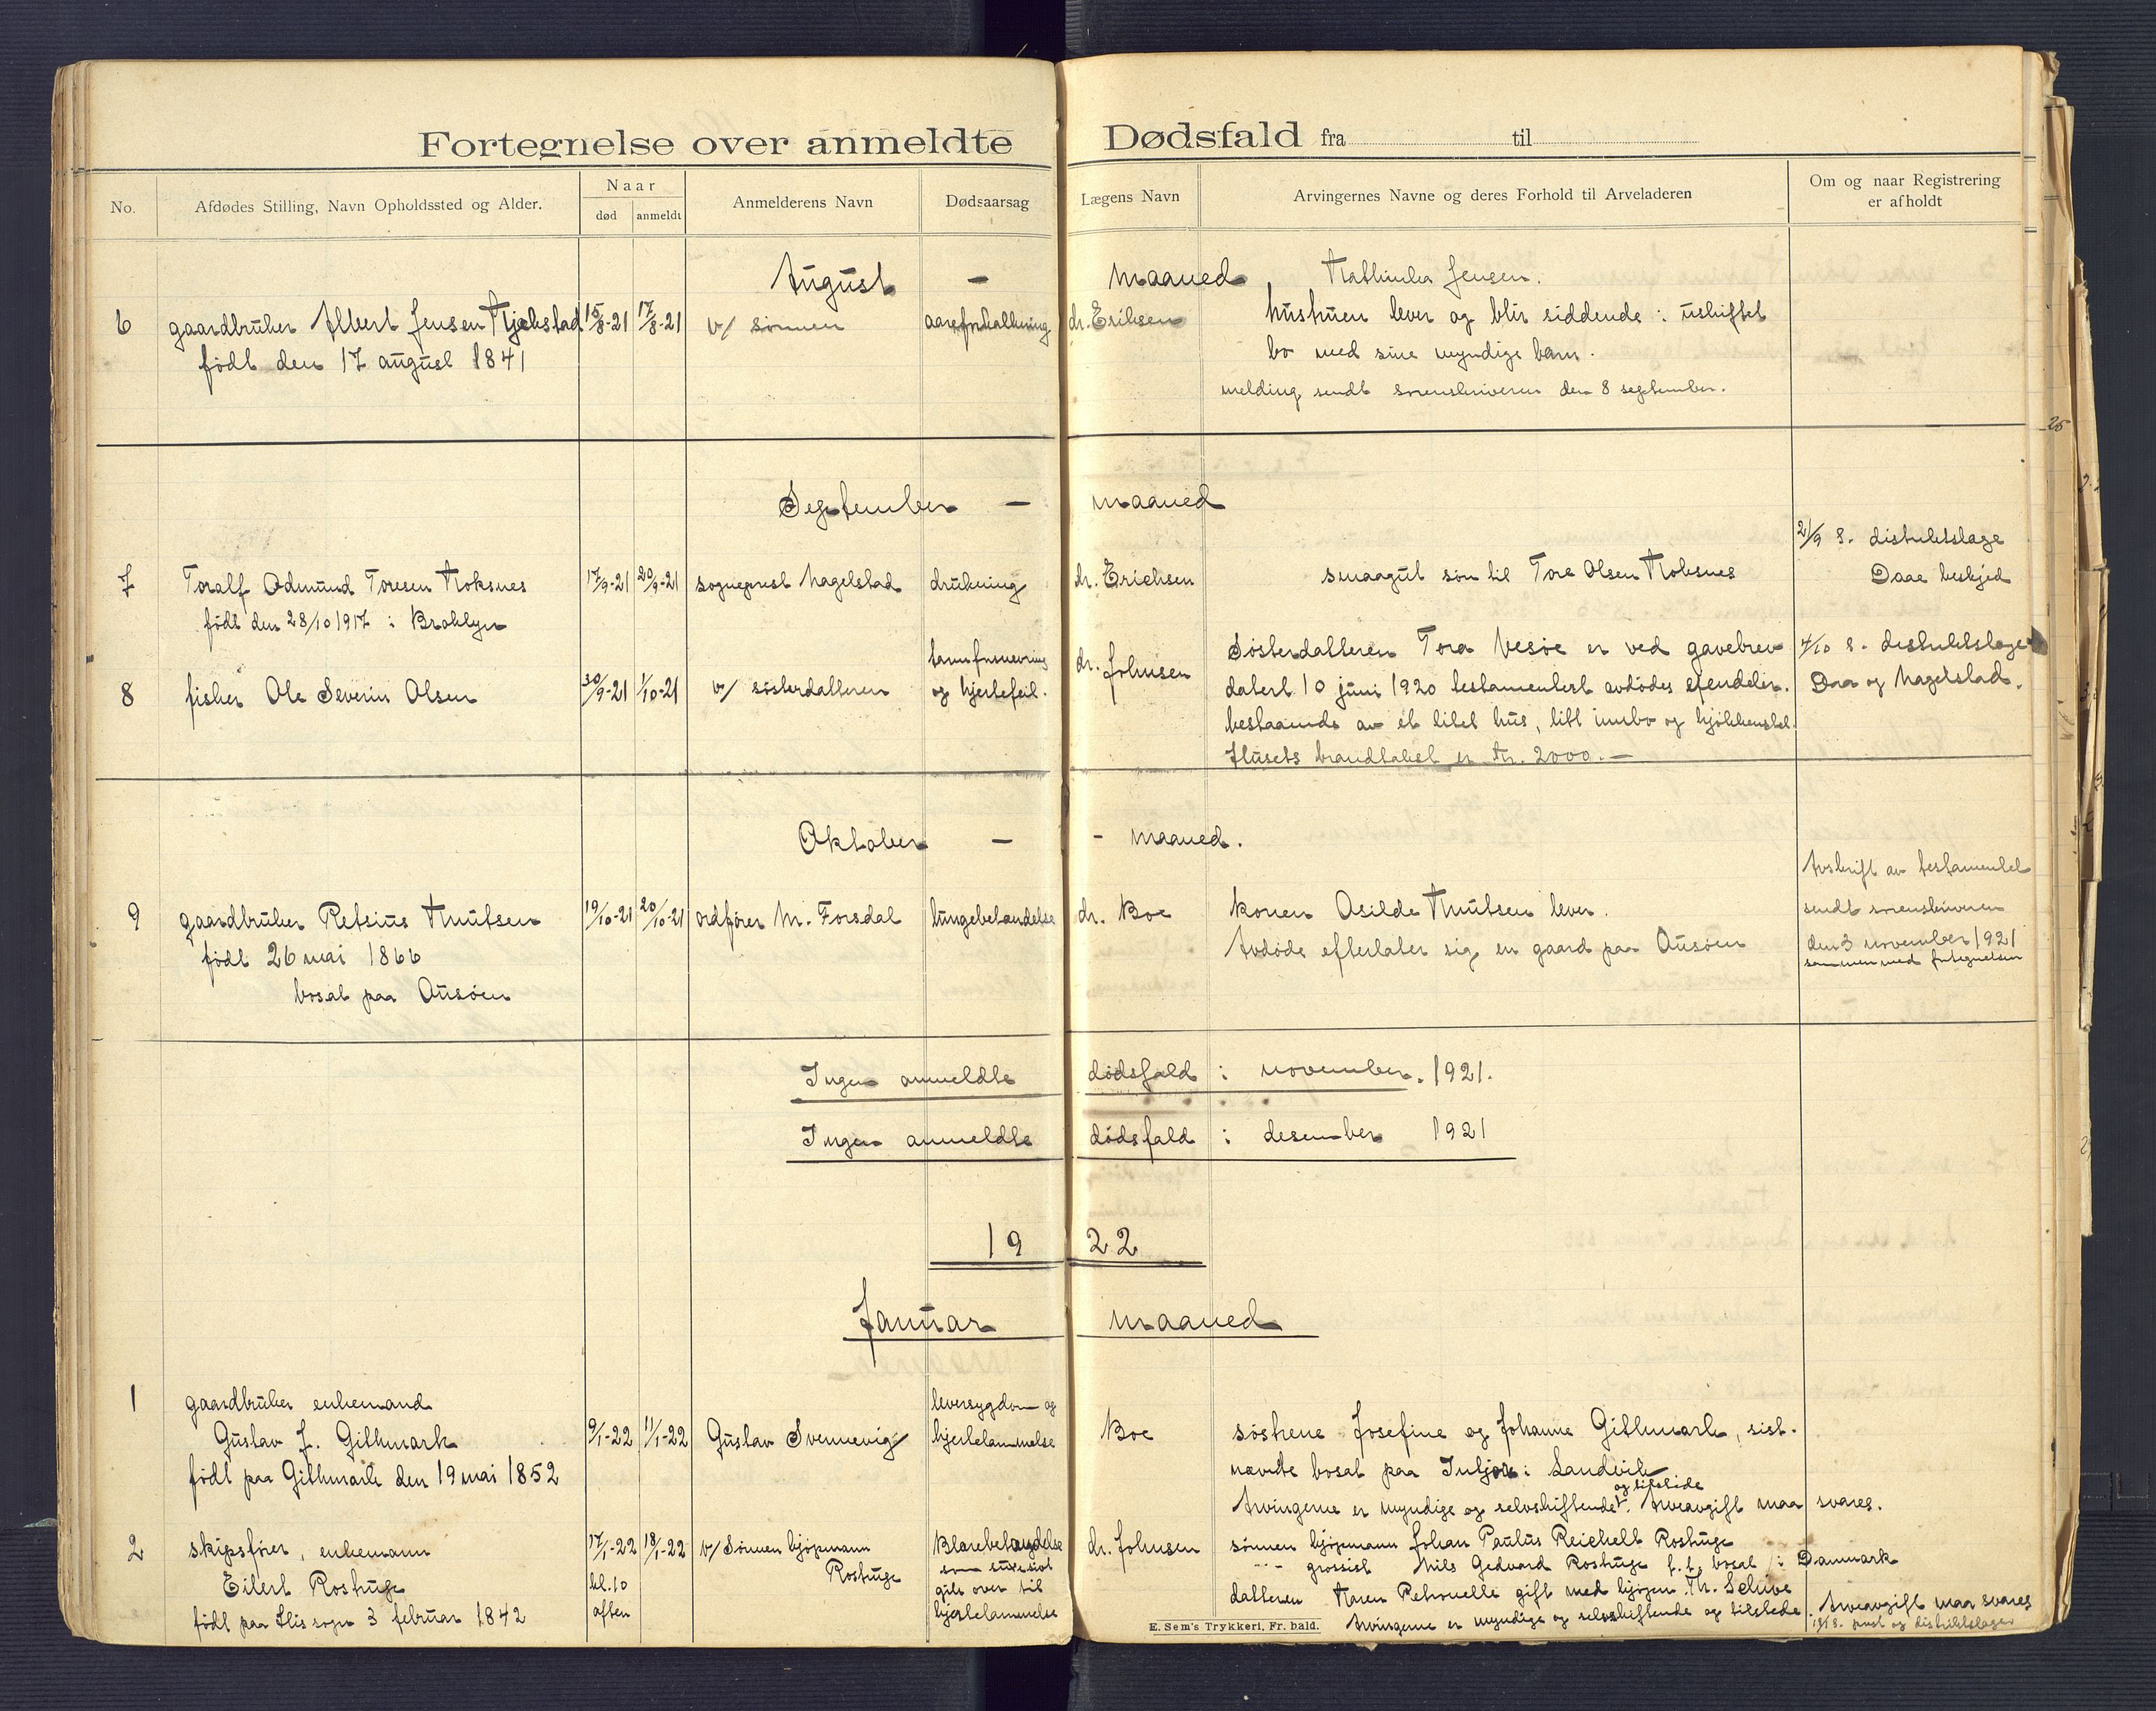 Fortegnelse over anmeldte Dødsfald fra til
No.
Afdødes Stilling, Navn Opholdssted og Alder.
Naar
død
anmeldt
Anmelderens Navn
Dødsaarsag
Lægens Navn
Arvingernes Navne og deres Forhold til Arveladeren
Om og naar Registrering
er afholdt
August — maaned
6
gaardbruker Albert Jensen
født den 17 august 1841
15/8-21
17/8-21
v/ sønnen
aareforkalkning
dr. Eriksen
Kathinka Jensen.
hustruen lever og blir siddende i uskiftet
bo med sine myndige barn.
melding sendt sorenskriveren den 8 september.
September — maaned
7
Toralf Odmund Toresen Koksnes
født den 28/10 1917 i Broklyn
17/9-21
20/9-21
sogneprest Hagelstad
drukning
dr. Erichsen
smaagut søn til Tore Olsen Koksnes
21/9 s. distriktslæge
Daae beskjed
8
fisker Ole Severin Olsen
30/9-21
1/10-21
v/ søsterdatteren
og hjertefeil.
dr. Johnsen
Søsterdatteren Tora Vesøe er ved gavebrev
datert 10 juni 1920 testamentert avdødes eiendeler.
bestaaende av et litet hus, litt innbo og kjøkkenstel.
Husets brandtakst er Kr. 2000.—
4/10 s. distriktslæge
Daa og Hagelstad.
Oktober — - maaned.
9
gaardbruker Retsius Knutsen
født 26 mai 1866
bosat paa Ousøen
19/10-21
20/10-21
ordfører M. Forsdal
lungebetændelse
dr. Boe
Konen Osilde Knutsen lever.
Avdøde efterlater sig en gaard paa Ousøen
Avskrift av testamentet
sendt sorenskriveren
den 3 november 1921
sammen med fortegnelsen
Ingen anmeldte dødsfald i november. 1921.
Ingen anmeldte dødsfald i desember 1921
1922
Januar maaned
1
gaardbruker enkemand
Gustav J. Githmark
født paa Githmark den 19 mai 1852
9/1-22
11/1-22
Gustav Svennevig
leversygdom og
hjertelammelse
Boe
søstrene Josefine og Johanne Githmark, sist-
nævnte bosat paa i Landvik
og tilstede
Arvingerne er myndige og selvskiftende. Arveavgift maa svares.
2
skipsfører, enkemann
Eilert Rostrup
født paa His sogn 3 februar 1842
17/1-22
kl. 10
aften
18/1-22
v/ Sønnen kjøpmann
Rostrup
Blærebetændelse
som
gik over til
hjertelammelse
dr. Johnsen
sønnen kjøpmann Johan Paulus Reichelt Rostrup
-"- grossist Nils Gedvard Rostrup f. t. bosat i Danmark
datteren Karen Petronelle gift med kjøpm. Th. Schive
Arvingerne er myndige og selvskiftende og tilstede. Arveavgift maa svares
prest og distriktslægen
E. Sem's Trykkeri, Fr. hald.